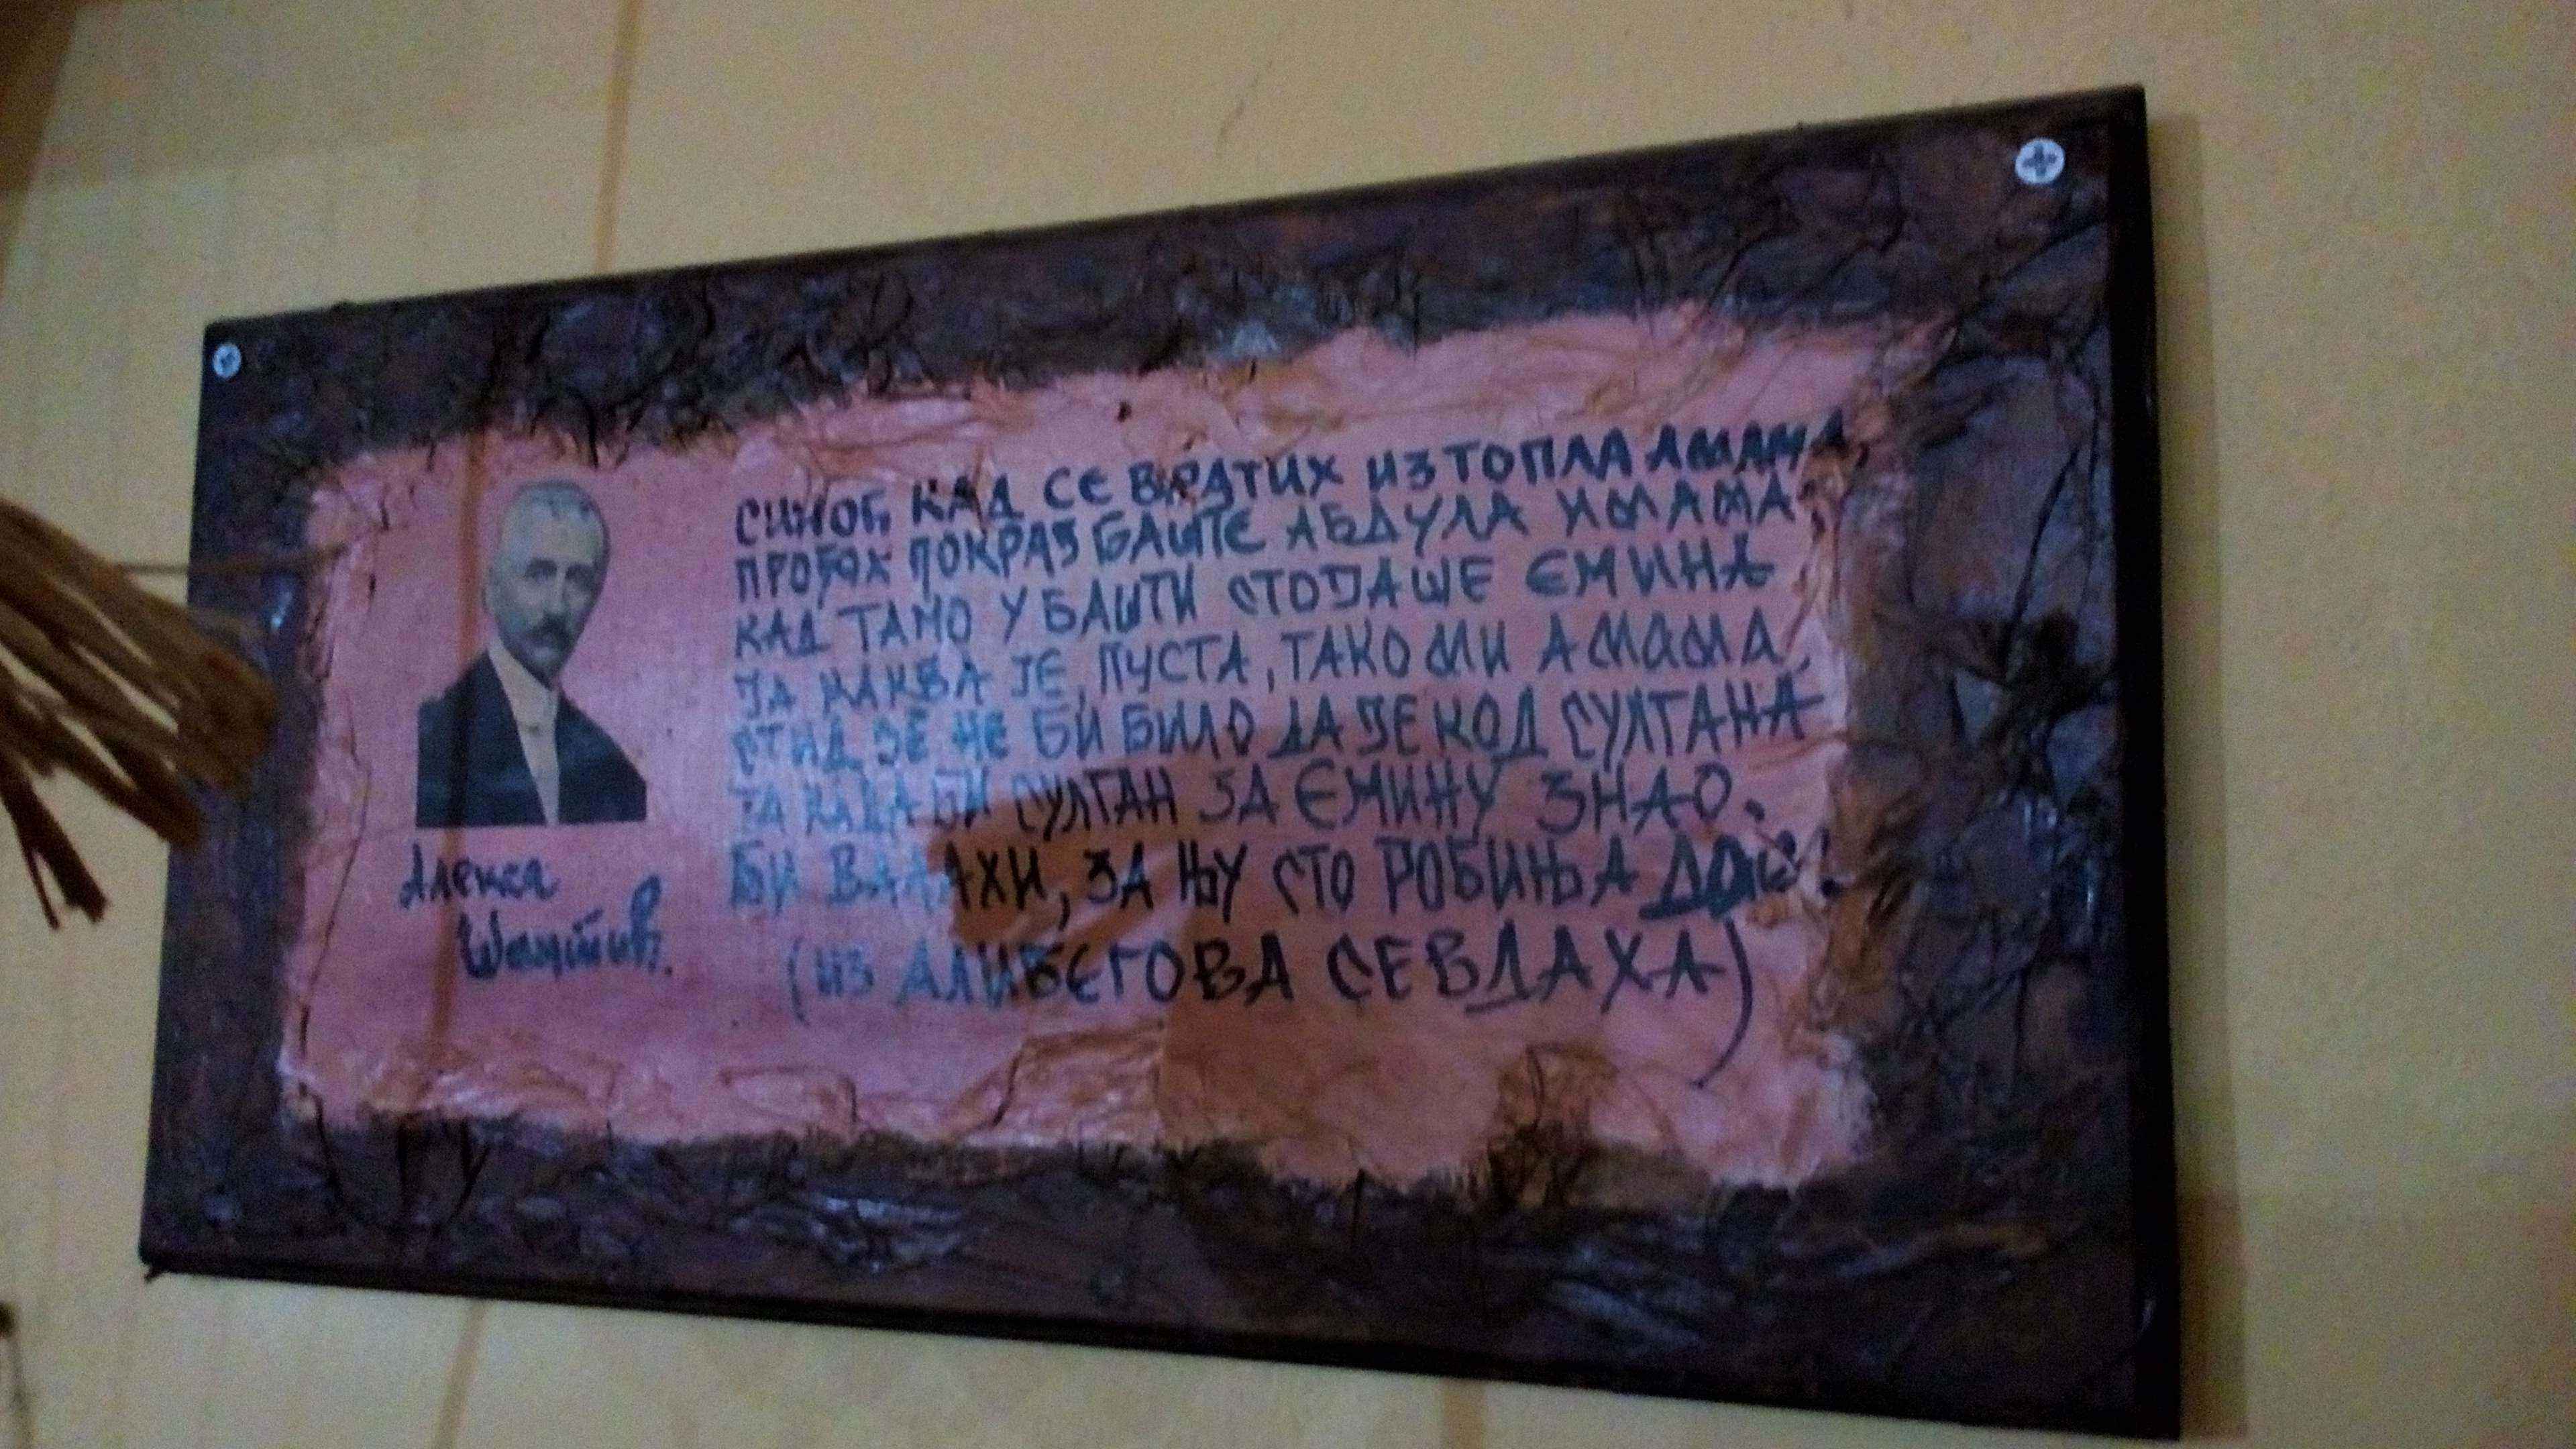 СИНОЋ, КАД СЕ ВРАТИХ ИЗ ТОПЛА АМАМА,
ПРОЂОХ ПОКРАЗ БАШТЕ АБДУЛА ИМАМА;
КАД ТАМО У БАШТИ СТОЈАШЕ ЕМИНА
ЈА КАКВА ЈЕ, ПУСТА, ТАКО МИ АМАМА,
СТИД ЈЕ НЕ БИ БИЛО ДА ЈЕ КОД СУЛТАНА
ЈА КАДА БИ СУЛТАН ЗА ЕМИНУ ЗНАО.
БИ ВАЛАХИ, ЗА ЊУ СТО РОБИЊА ДАО!
(ИЗ АЛИБЕГОВА СЕВДАХА)
Алекса
Шантић.